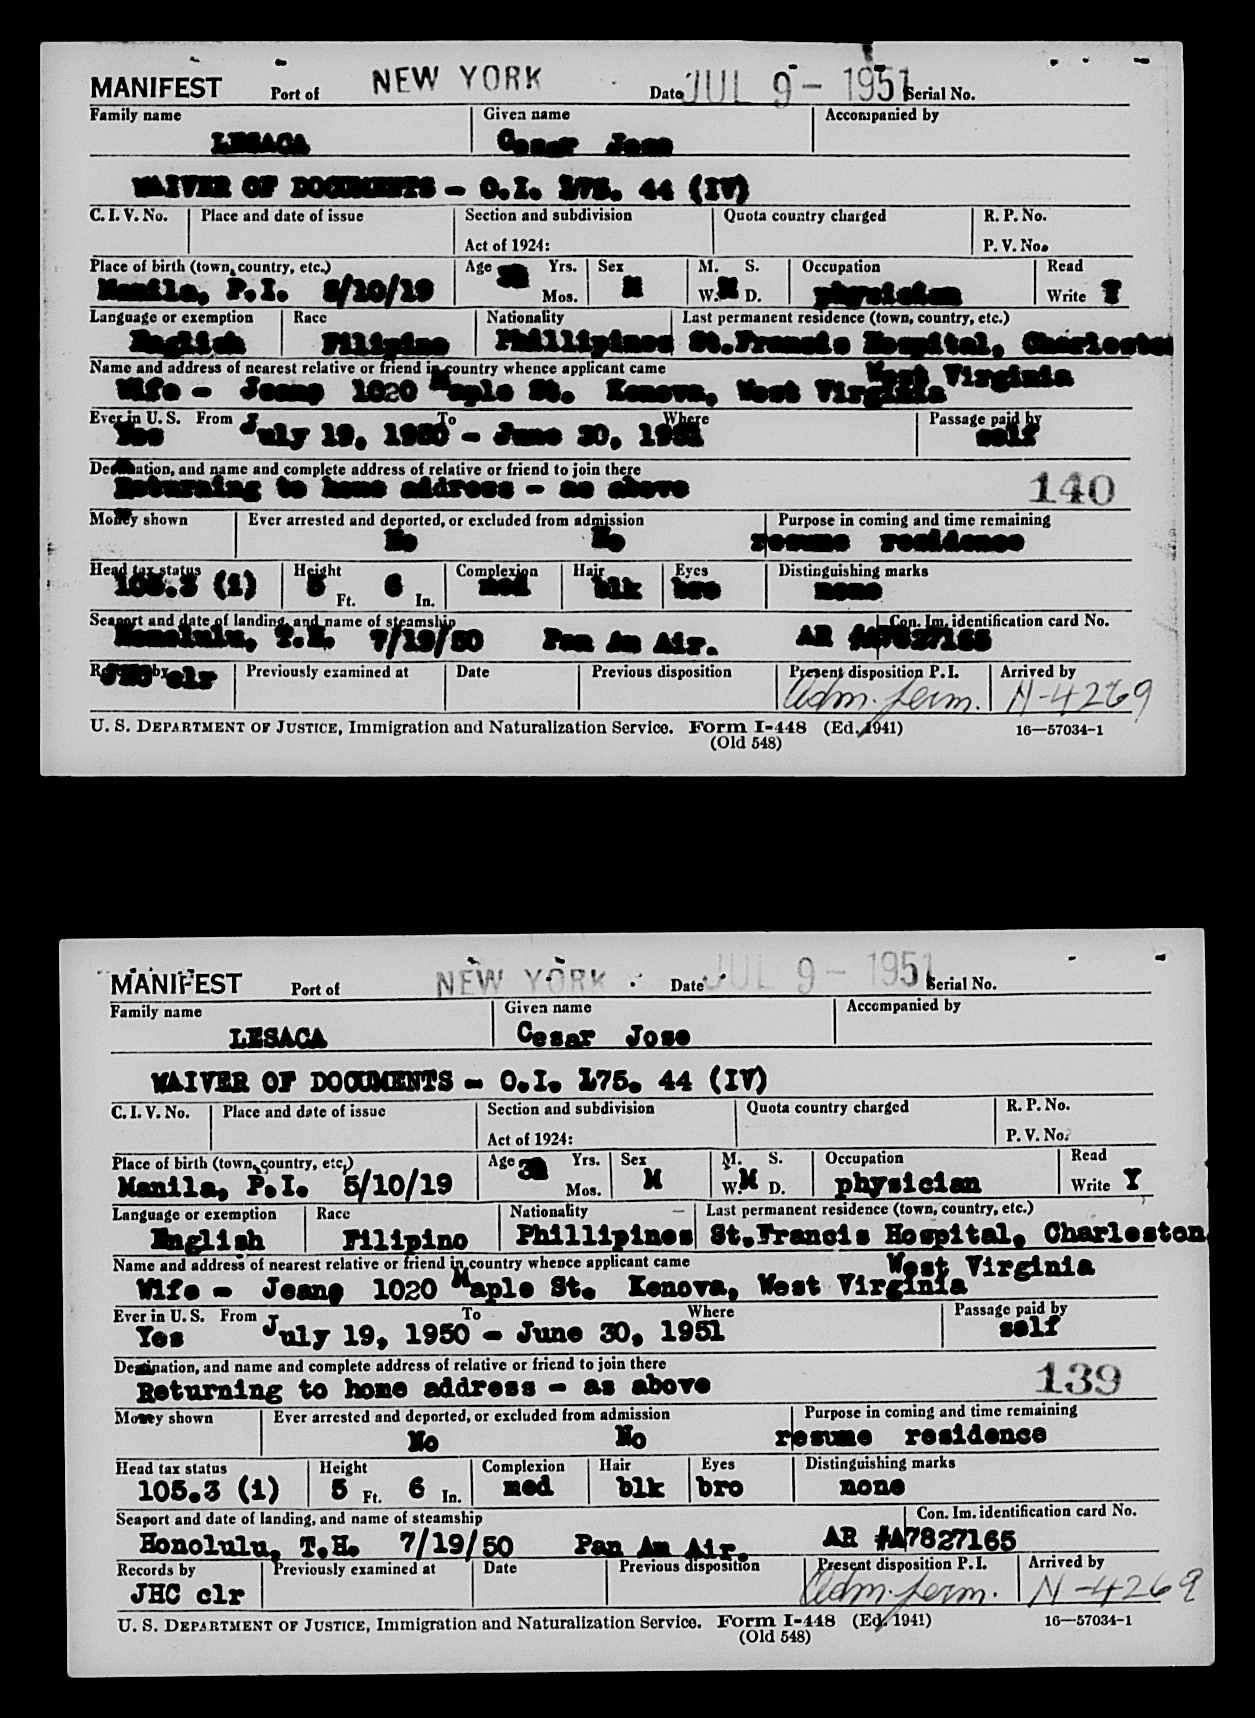 MANIFEST Port of NEW YORK Date JUL 9 - 1951 Serial No.
Family name Given name Accompanied by
LESACA Cesar Jose
WAIVER OF DOCUMENTS - O.I. 175. 44 (IV)
C. I. V. No. Place and date of issue Section and subdivision Quota country charged R. P. No.
Act of 1924: P. V. No.
Place of birth (town, country, etc.) Age Yrs. Sex M. S. Occupation Read
Manila, P.I. 5/10/19 32 Mos. M W. M D. physician Write Y
Language or exemption Race Nationality Last permanent residence (town, country, etc.)
English Filipino Phillipines St.Francis Hospital, Charleston
Name and address of nearest relative or friend in country whence applicant came West Virginia
Wife - Jeane 1020 Maple St. Kenova, West Virginia
Ever in U. S. From To Where Passage paid by
Yes July 19, 1950 - June 30, 1951 self
Destination, and name and complete address of relative or friend to join there
Returning to home address - as above 140
Money shown Ever arrested and deported, or excluded from admission Purpose in coming and time remaining
No No resume residence
Head tax status Height Complexion Hair Eyes Distinguishing marks
105.3 (i) 5 Ft. 6 In. med blk bro none
Seaport and date of landing, and name of steamship Con. Im. identification card No.
Honolulu, T.H. 7/19/50 Pan Am Air. AR #A7827165
Records by Previously examined at Date Previous disposition Present disposition P. I. Arrived by
JHC clr Adm. perm. N-4269
U. S. DEPARTMENT OF JUSTICE, Immigration and Naturalization Service. Form I-448 (Ed. 1941) 16—57034-1
(Old 548)
MANIFEST Port of NEW YORK Date JUL 9 - 1951 Serial No.
Family name Given name Accompanied by
LESACA Cesar Jose
WAIVER OF DOCUMENTS - O.I. 175. 44 (IV)
C. I. V. No. Place and date of issue Section and subdivision Quota country charged R. P. No.
Act of 1924: P. V. No.
Place of birth (town, country, etc.) Age Yrs. Sex M. S. Occupation Read
Manila, P.I. 5/10/19 32 Mos. M W. M D. physician Write Y
Language or exemption Race Nationality Last permanent residence (town, country, etc.)
English Filipino Phillipines St.Francis Hospital, Charleston,
Name and address of nearest relative or friend in country whence applicant came West Virginia
Wife - Jeane 1020 Maple St. Kenova, West Virginia
Ever in U. S. From To Where Passage paid by
Yes July 19, 1950 - June 30, 1951 self
Destination, and name and complete address of relative or friend to join there
Returning to home address - as above 139
Money shown Ever arrested and deported, or excluded from admission Purpose in coming and time remaining
No No resume residence
Head tax status Height Complexion Hair Eyes Distinguishing marks
105.3 (i) 5 Ft. 6 In. med blk bro none
Seaport and date of landing, and name of steamship Con. Im. identification card No.
Honolulu, T.H. 7/19/50 Pan Am Air. AR #A7827165
Records by Previously examined at Date Previous disposition Present disposition P. I. Arrived by
JHC clr Adm. perm. N-4269
U. S. DEPARTMENT OF JUSTICE, Immigration and Naturalization Service. Form I-448 (Ed. 1941) 16—57034-1
(Old 548)